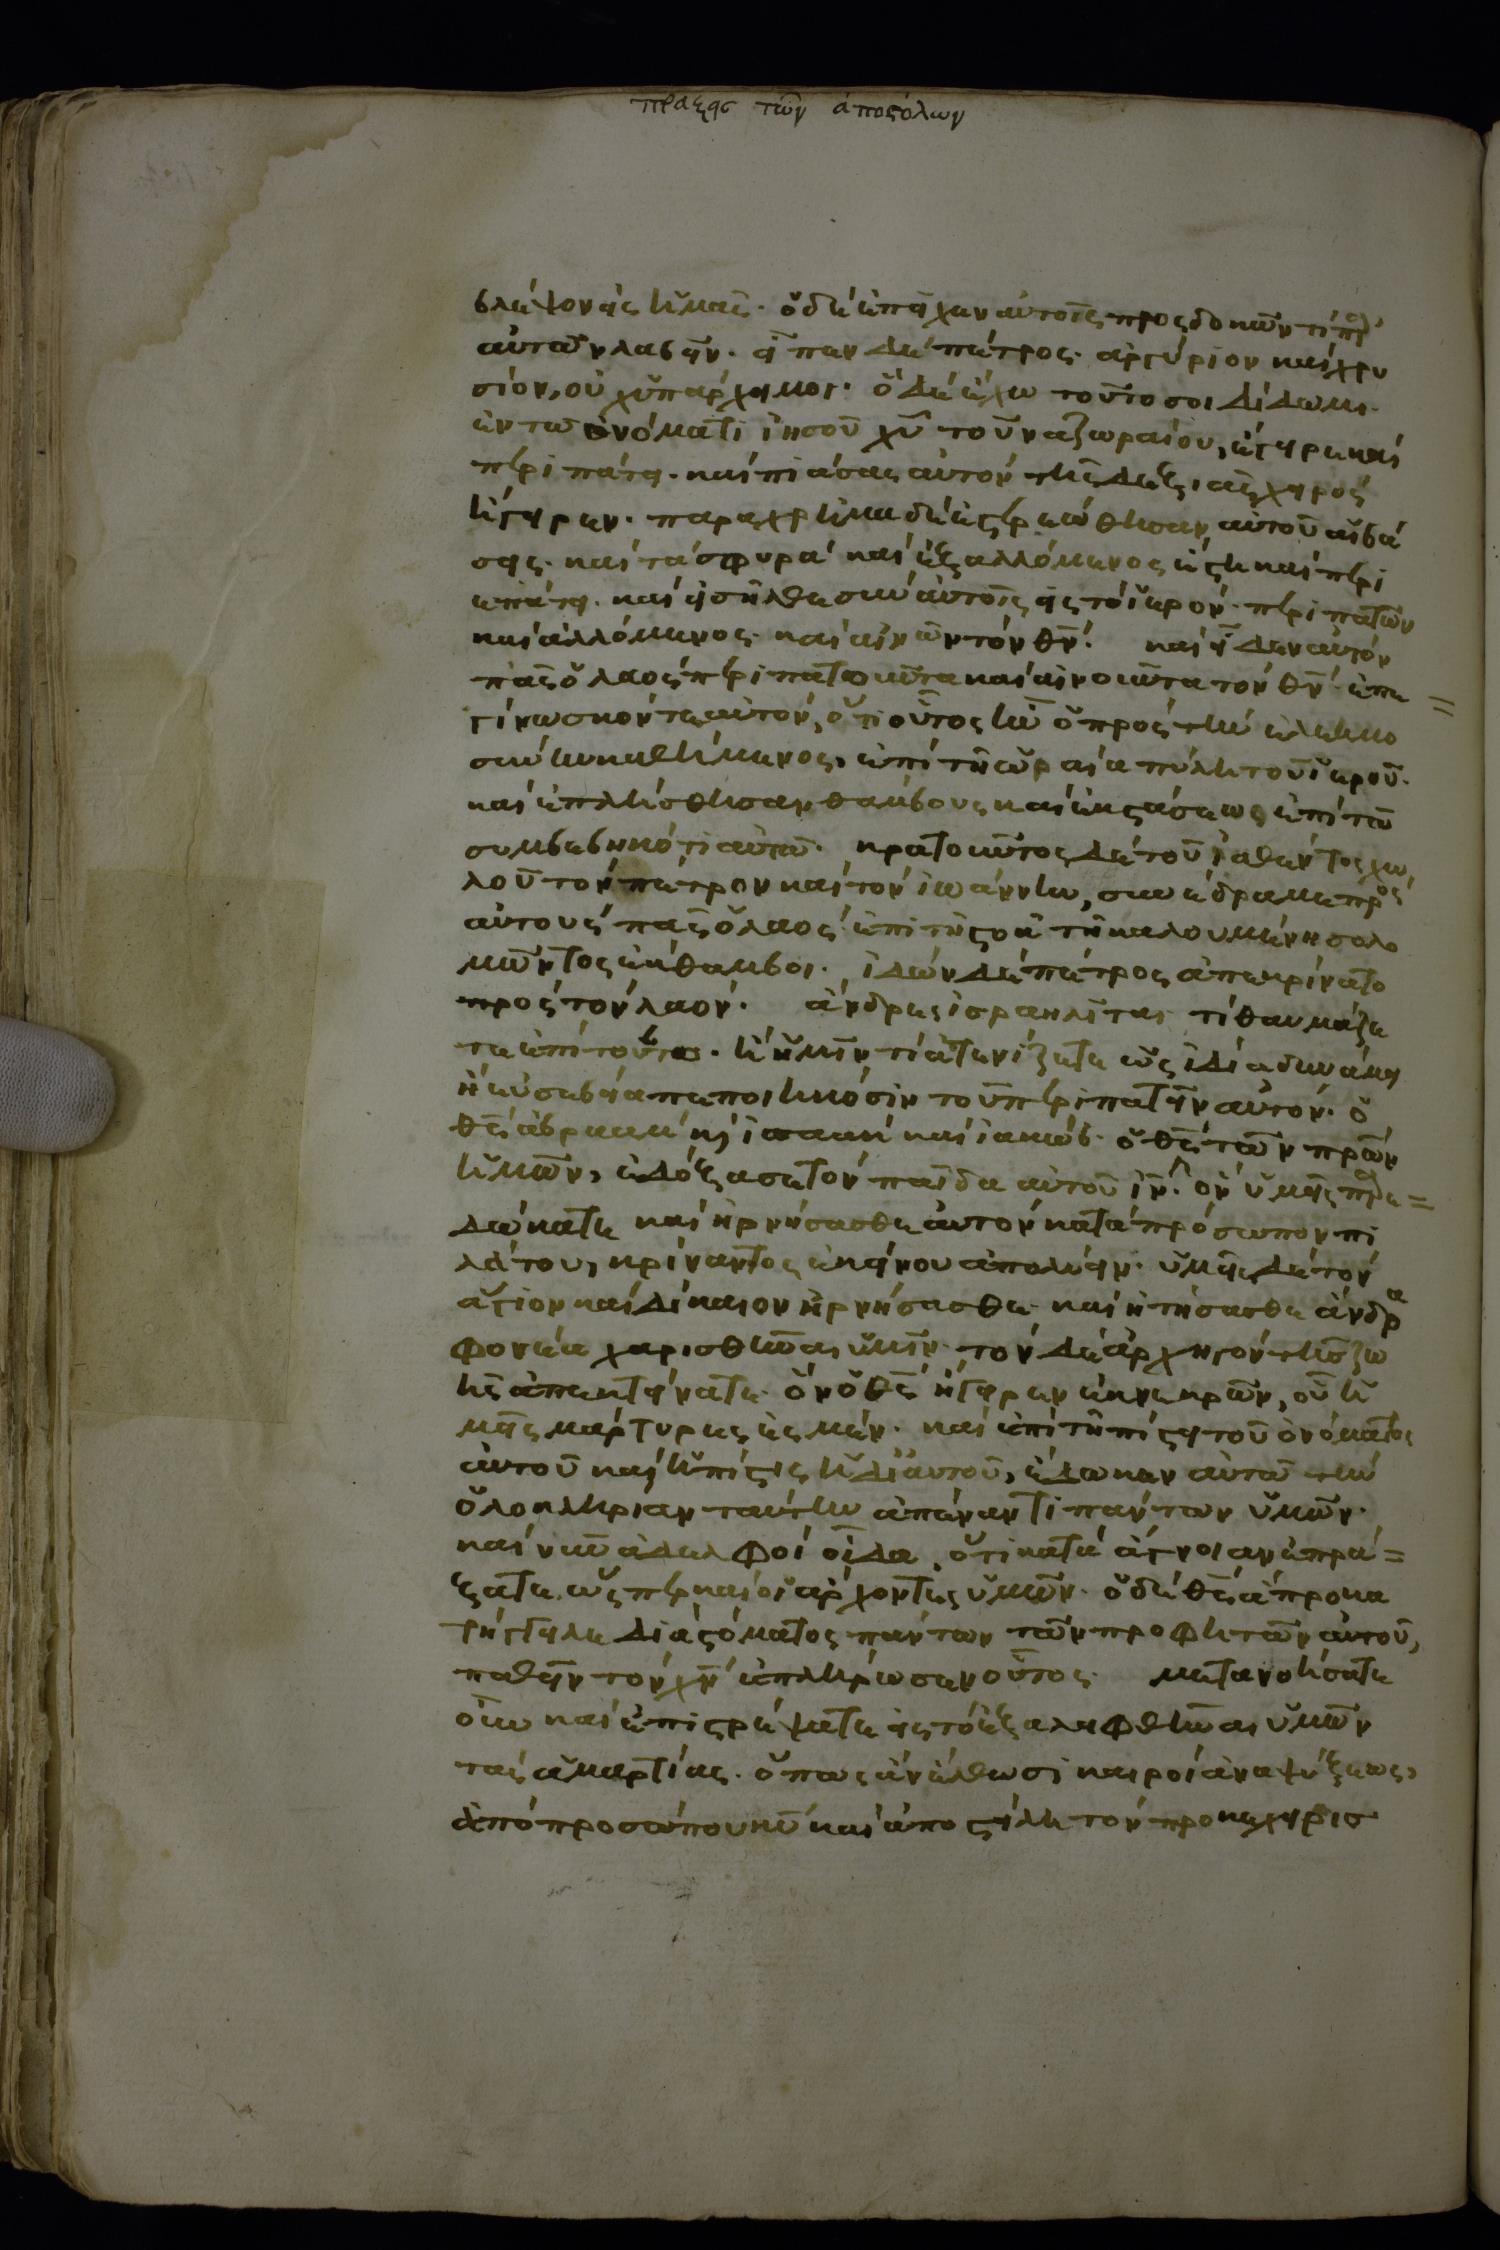 πράξεις τῶν ἀποστόλων
βλέψον εἰς ἡμᾶς· ὁ δὲ ἐπεῖχεν αὐτοῖς προςδοκῶν τὶ πὰρ
αὐτῶν λαβεῖν· εἶπεν δὲ πέτρος· ἀργύριον καὶ χρυ
σίον, οὐχ ὑπάρχει μοι· ὃ δὲ ἔχω τοῦτο σοι δίδωμι·
ἐν τῶ ὀνόματι ἰησοῦ χῦ τοῦ ναζωραίου, ἔγειρε καὶ
περιπάτει· καὶ πιάσας αὐτὸν τῆς δεξιᾶς χειρὸς
ἤγειρεν· παραχρῆμα δὲ ἐστερεώθησαν αὐτοῦ αἱ βά
σεις· καὶ τὰ σφυρὰ καὶ ἐξαλλόμενος ἔστη καὶ περι
επάτει· καὶ εἰσῆλθε σὺν αὐτοῖς εἰς τὸ ἱερὸν· περιπατῶν
καὶ ἁλλόμενος καὶ αἰνῶν τὸν θν̅· καὶ εἶδεν αὐτὸν
πᾶς ὁ λαὸς περιπατοῦντα καὶ αἰνοῦντα τὸν θν̅· ἐπε
γίνωσκόν τε αὐτὸν, ὅτι οὗτος ἦν ὁ πρὸς τὴν ἐλεημο
σύνην καθήμενος, ἐπὶ τῆ ὡραία πύλη τοῦ ἱεροῦ·
καὶ ἐπλήσθησαν θάμβους καὶ ἐκστάσεως ἐπὶ τῶ
συμβεβηκότι αὐτῶ· κρατοῦντος δὲ τοῦ ἰαθέντος χω
λοῦ τὸν πέτρον καὶ τὸν ἰωάννην, συνέδραμε πρὸς
αὐτοὺς πᾶς ὁ λαὸς ἐπὶ τῆ στοᾶ τῆ καλουμένη σολο
μῶντος ἔκθαμβοι· ἰδὼν δὲ πέτρος ἀπεκρίνατο
πρὸς τὸν λαόν· ἄνδρες ἰσραηλῖται τί θαυμάζε
τε ἐπὶ τούτω· ἢ ἡμῖν τί ἀτενίζετε ὡς ἰδία δυνάμει
ἢ εὐσεβεία πεποιηκόσιν τοῦ περιπατεῖν αὐτόν· ὁ
θς̅ ἀβραὰμ κὶ ἰσαὰκ καὶ ἰακώβ· ὁ θς̅ τῶν πρῶν
ἡμῶν, ἐδόξασε τὸν παῖδα αὐτοῦ ἰν̅· ὃν ὑμεῖς παρε=
δώκατε καὶ ἠρνήσασθε αὐτὸν κατὰ πρόσωπον πι
λάτου, κρίναντος ἐκείνου ἀπολύειν· ὑμεῖς δὲ τὸν
ἅγιον καὶ δίκαιον ἠρνήσασθε· καὶ ἠτήσασθε ἄνδρα
φονέα χαρισθῆναι ὑμῖν· τὸν δὲ ἀρχηγὸν τῆς ζω
ῆς ἀπεκτείνατε· ὃν ὁ θς̅ ἤγειρεν ἐκ νεκρῶν, οὗ ἡ
μεῖς μάρτυρες ἐσμέν· καὶ ἐπὶ τῆ πίστει τοῦ ὀνόματος
αὐτοῦ καὶ ἡ πίστις ἡ δἰ αὐτοῦ, ἔδωκεν αὐτῶ τὴν
ὁλοκληρίαν ταύτην ἀπέναντι πάντων ὑμῶν·
καὶ νῦν ἀδελφοὶ οἶδα, ὅτι κατὰ ἄγνοιαν ἐπρά=
ξατε, ὥςπερ καὶ οἱ ἄρχοντες ὑμῶν· ὁ δὲ θς̅ ἃ προκα
τήγγειλε διὰ στόματος πάντων τῶν προφητῶν αὐτοῦ,
παθεῖν τὸν χν̅ ἐπλήρωσεν οὕτος· μετανοήσατε
οὖν καὶ ἐπιστρέψατε εἰς τὸ ἐξαλειφθῆναι ὑμῶν
τὰς ἁμαρτίας· ὅπως ἂν ἔλθωσι καιροὶ ἀναψύξεως,
ἀπὸ προσώπου κυ̅ καὶ ἀποστείλη τὸν προκεχειρισ